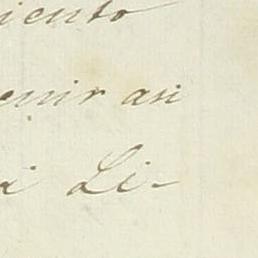 iento
enir asi
a Li-